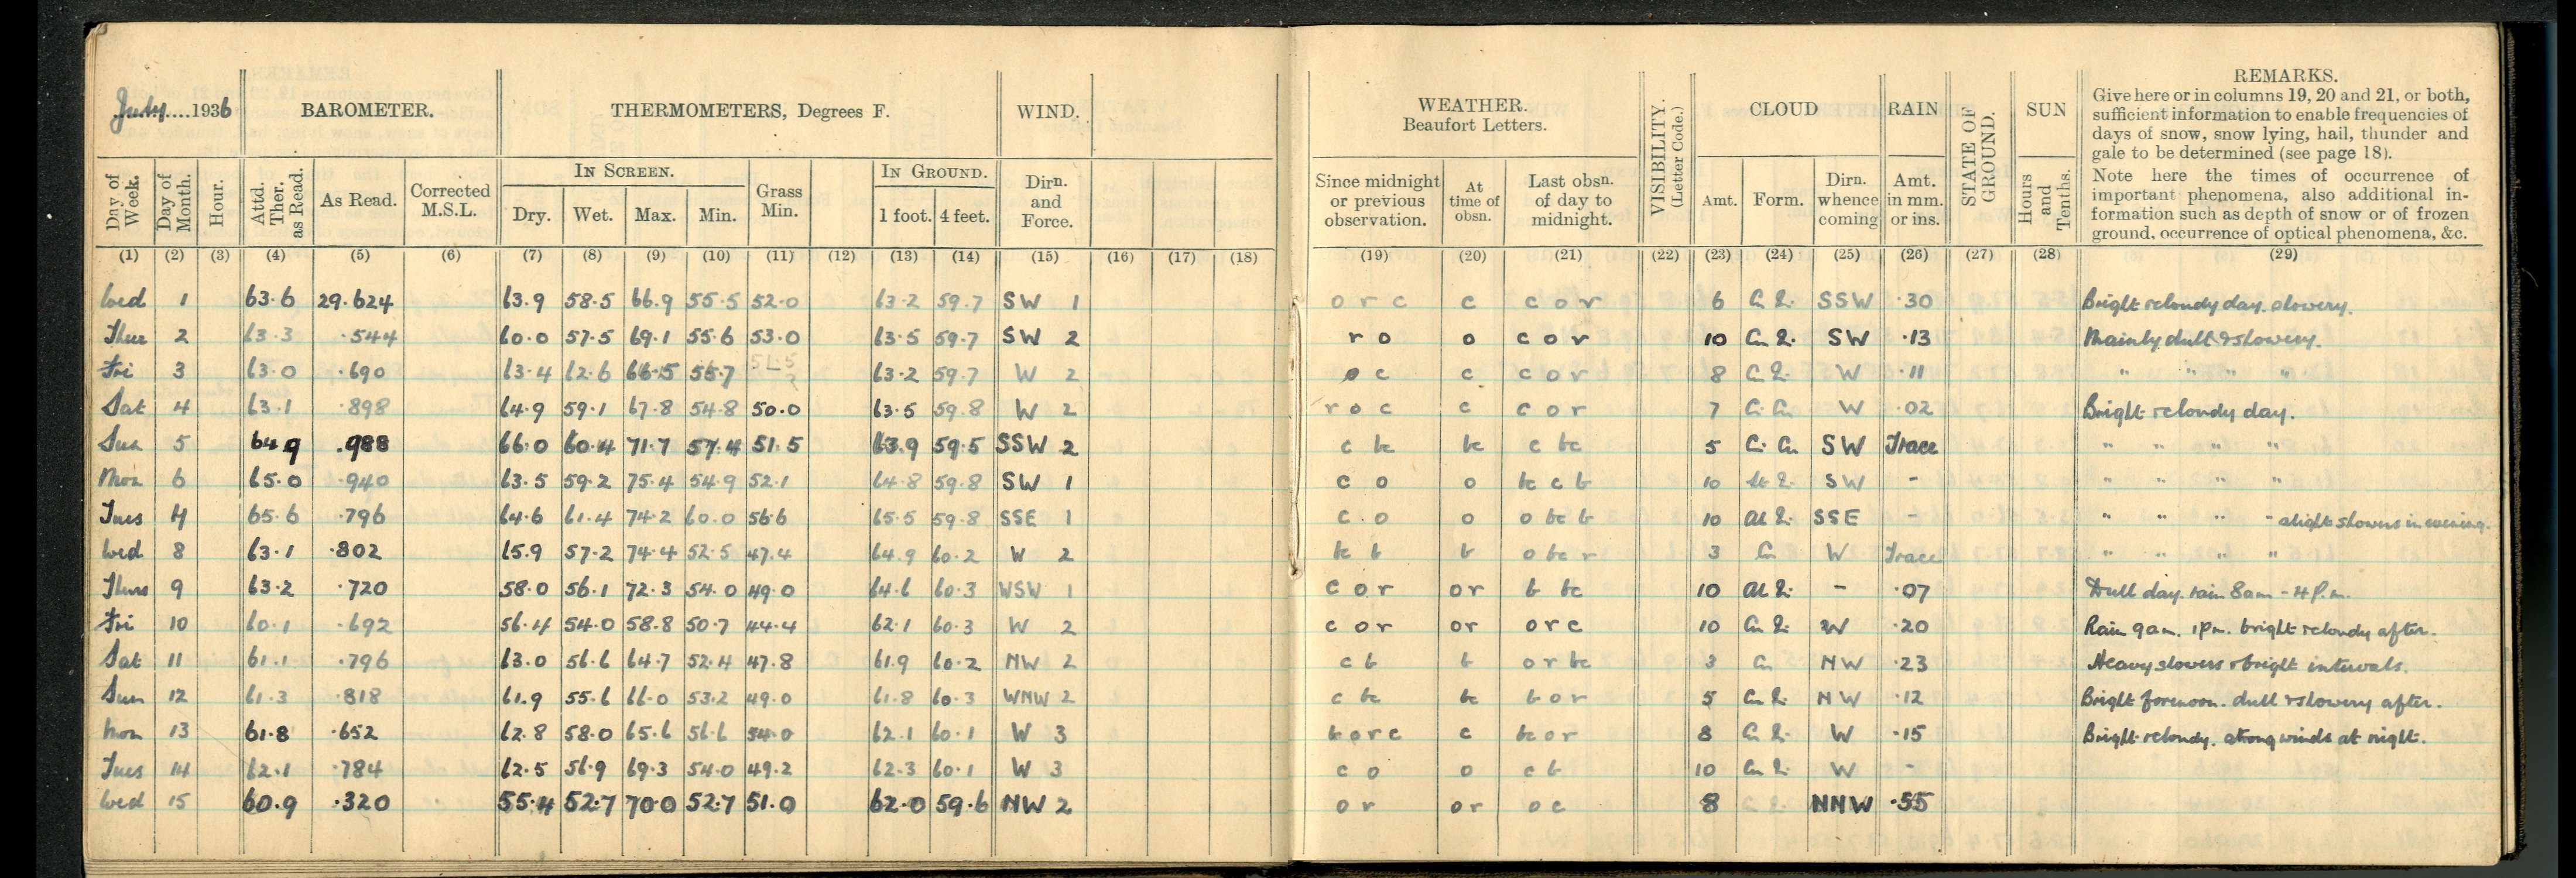 July....1936 BAROMETER. THERMOMETERS, Degrees F. WIND.
Day of Week. Day of Month. Hour. Attd. Ther. as Read. As Read. Corrected M.S.L. IN SCREEN. Dry. Wet. Max. Min. Grass Min. IN GROUND. 1 foot. 4 feet. Dirn. and Force.
(1) (2) (3) (4) (5) (6) (7) (8) (9) (10) (11) (12) (13) (14) (15) (16) (17) (18)
Wed 1 63.6 29.624 63.9 58.5 66.9 55.5 52.0 63.2 59.7 SW 1
Thur 2 63.3 .544 60.0 57.5 69.1 55.6 53.0 63.5 59.7 SW 2
Fri 3 63.0 .690 63.4 62.6 66.5 55.7 63.2 59.7 W 2
Sat 4 63.1 .898 64.9 59.1 67.8 54.8 50.0 63.5 59.8 W 2
Sun 5 64.9 .988 66.0 60.4 71.7 57.4 51.5 63.9 59.5 SSW 2
Mon 6 65.0 .940 63.5 59.2 75.4 54.9 52.1 64.8 59.8 SW 1
Tues 7 65.6 .796 64.6 61.4 74.2 60.0 56.6 65.5 59.8 SSE 1
Wed 8 63.1 .802 65.9 57.2 74.4 52.5 47.4 64.9 60.2 W 2
Thurs 9 63.2 .720 58.0 56.1 72.3 54.0 49.0 64.6 60.3 WSW 1
Fri 10 60.1 .692 56.4 54.0 58.8 50.7 44.4 62.1 60.3 W 2
Sat 11 61.1 .796 63.0 56.6 64.7 52.4 47.8 61.9 60.2 NW 2
Sun 12 61.3 .818 61.9 55.6 66.0 53.2 49.0 61.8 60.3 WNW 2
Mon 13 61.8 .652 62.8 58.0 65.6 56.6 54.0 62.1 60.1 W 3
Tues 14 62.1 .784 62.5 56.9 69.3 54.0 49.2 62.3 60.1 W 3
Wed 15 60.9 .320 55.4 52.7 70.0 52.7 51.0 62.0 59.6 NW 2
WEATHER. Beaufort Letters. VISIBILITY. (Letter Code.) CLOUD RAIN STATE OF GROUND. SUN REMARKS.
Give here or in columns 19, 20 and 21, or both,
sufficient information to enable frequencies of
days of snow, snow lying, hail, thunder and
gale to be determined (see page 18).
Note here the times of occurrence of
important phenomena, also additional in-
formation such as depth of snow or of frozen
ground, occurrence of optical phenomena, &c.
Since midnight or previous observation. At time of obsn. Last obsn. of day to midnight. Amt. Form. Dirn. whence coming Amt. in mm. or ins. Hours and Tenths.
(19) (20) (21) (22) (23) (24) (25) (26) (27) (28) (29)
o r c c c o r 6 SSW .30 Bright & cloudy day. showery.
r o o c o r 10 SW .13 Mainly dull & showery.
o c c c o r 8 W .11 " " " "
r o c c c o r 7 W .02 Bright & cloudy day.
c bc bc c bc 5 SW Trace " " " "
c o o bc c b 10 SW - " " " "
c o o o bc b 10 SSE - " " " " slight showers in evening.
bc b b o bc r 3 Cu W Trace " " " "
c o r or b bc 10 - .07 Dull day. rain 8am - 4 P.m.
c o r or o r c 10 W .20 Rain 9am. 1Pm. bright & cloudy after.
c b b o r bc 3 Cu NW .23 Heavy showers & bright intervals.
c bc bc b o r 5 NW .12 Bright forenoon. dull & showery after.
b o r c c bc o r 8 W .15 Bright & cloudy. strong winds at night.
c o o c b 10 W -
o r or o c 8 NNW .55